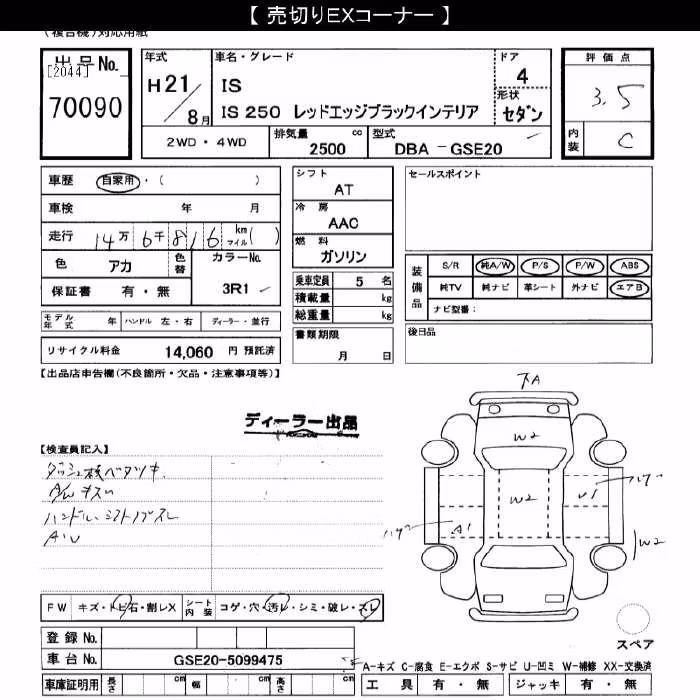 【 売切りEXコーナー 】
(複合機)対応用紙
出品No.
[2044]
70090
年式
H 21/8月
車名・グレード
IS
IS 250 レッドエッジブラックインテリア
ドア
4
形状
セダン
2WD・4WD
排気量 cc
2500
型式
DBA - GSE20
評価点
3.5
内装
C
車歴 自家用・( )
車検 年 月
走行 14万 6千 816 km マイル( )
色 アカ
色替
カラーNo.
3R1
保証書 有・無
モデル年式 年 ハンドル 左・右 ディーラー・並行
リサイクル料金 14,060 円 預託済
シフト
AT
冷房
AAC
燃料
ガソリン
乗車定員 5 名
積載量 kg
総重量 kg
書類期限
月 日
セールスポイント
装備品
S/R 純A/W P/S P/W ABS
純TV 純ナビ 革シート 外ナビ エアB
ナビ型番:
後日品
【出品店申告欄(不良箇所・欠品・注意事項等)】
ディーラー出品
【検査員記入】
ダッシュ板ベタツキ
A/Wキズ
ハンドル、シフトノブスレ
下A
W2
W2
U1
A1
W2
FW キズ・トビ石・割レX
シート内装 コゲ・穴・汚レ・シミ・破レ・スレ
登録 No.
車台 No. GSE20-5099475
車庫証明用 長さ cm 幅 cm 高さ cm
スペア
A-キズ C-腐食 E-エクボ S-サビ U-凹ミ W-補修 XX-交換済
工具 有・無 ジャッキ 有・無